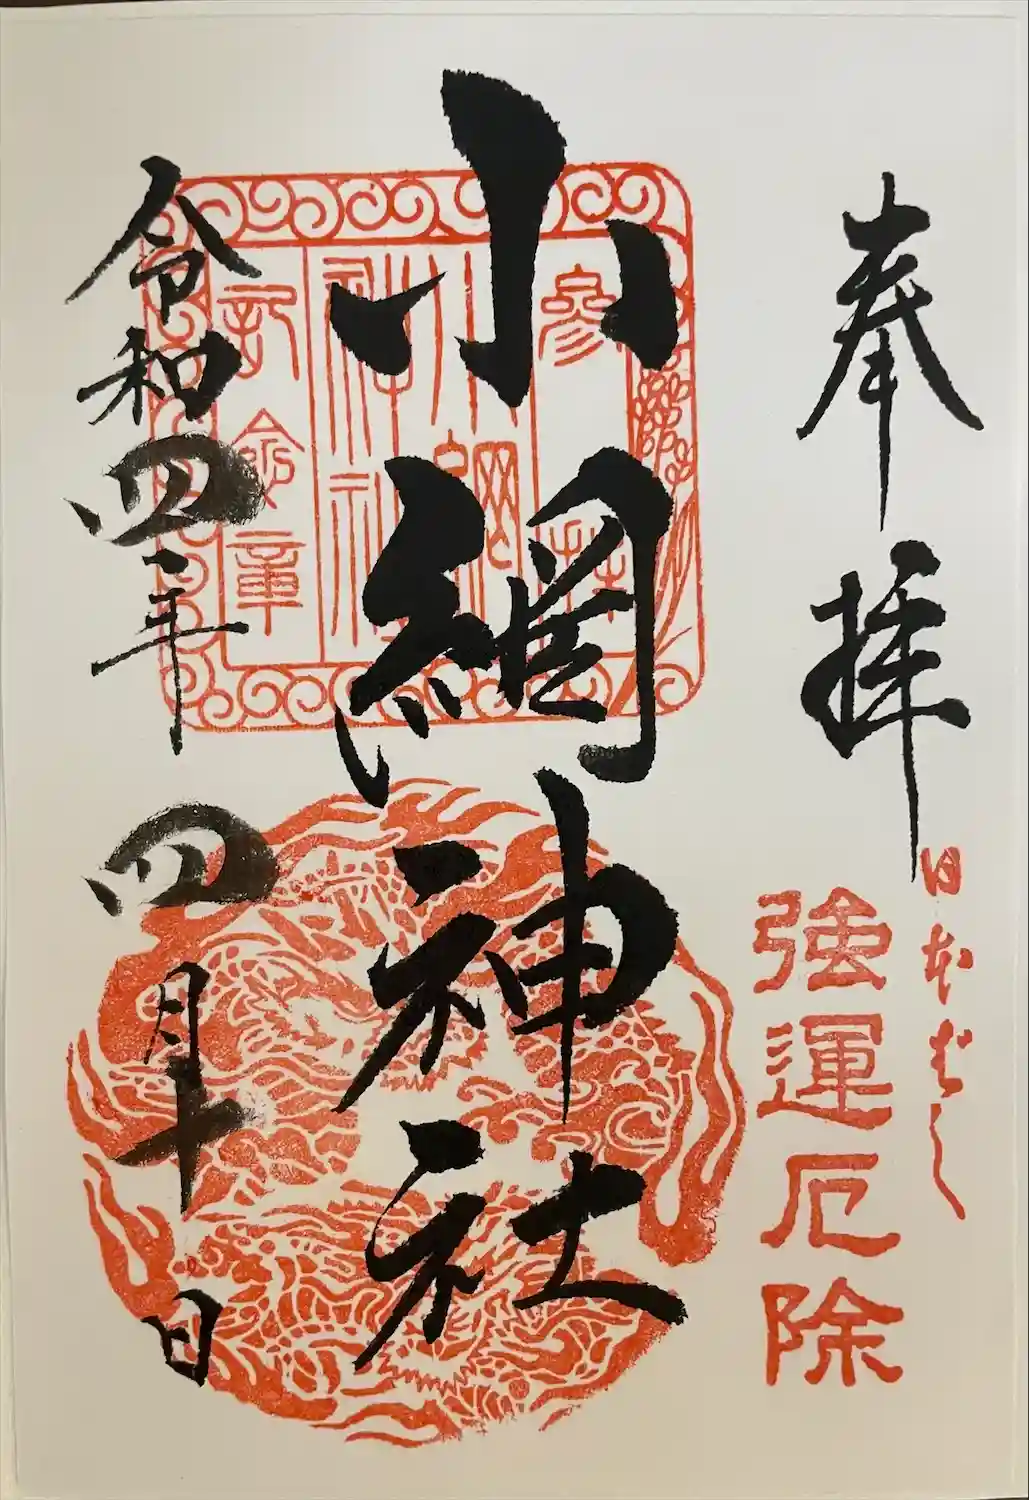 奉拝
日本ばし
強運厄除
小網神社
参拝
小網神社
記念章
令和四年四月十日